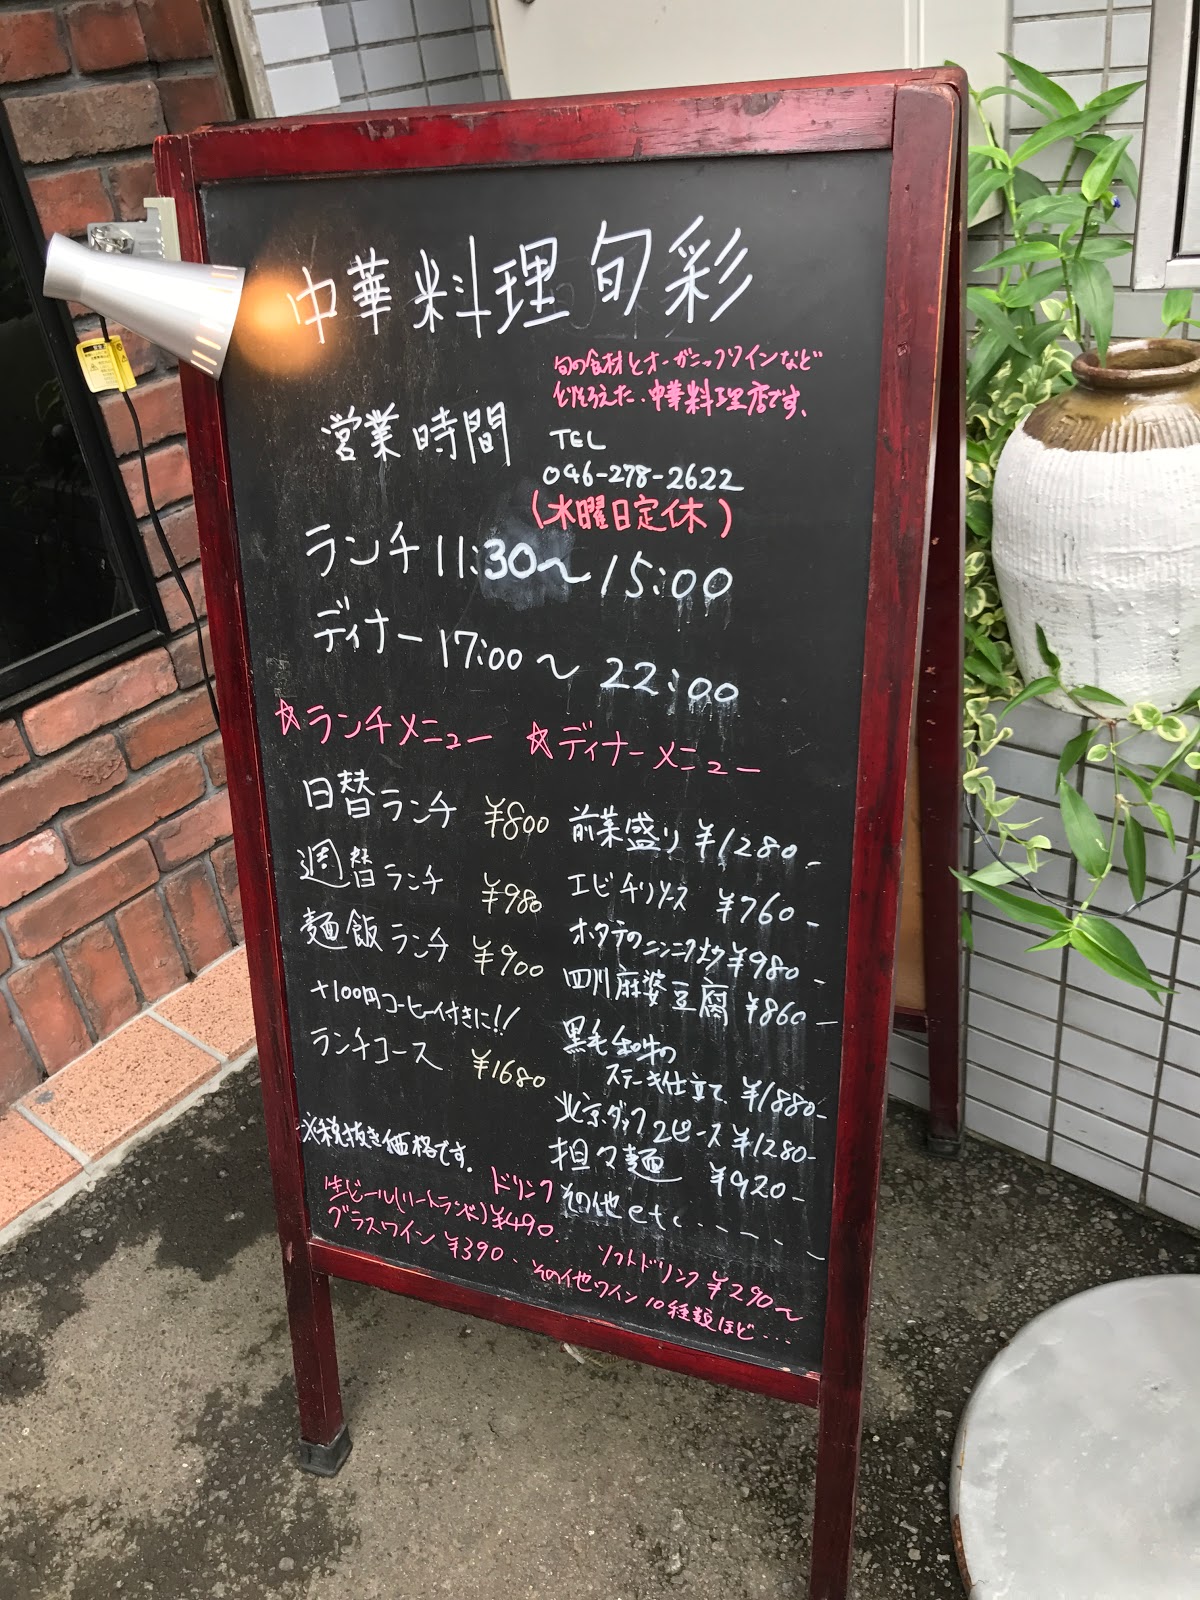 中華料理旬彩
旬の食材とオーガニックワインなど
とりそろえた、中華料理店です。
営業時間
TEL
046-278-2622
(水曜日定休)
ランチ 11:30〜15:00
ディナー 17:00〜22:00
☆ランチメニュー
日替ランチ ¥800
週替ランチ ¥980
麺飯ランチ ¥900
+100円コーヒー付きに!!
ランチコース ¥1680
※税抜き価格です。
☆ディナーメニュー
前菜盛り ¥1280-
エビチリソース ¥760-
ホタテのニンニク ¥980-
四川麻婆豆腐 ¥860-
黒毛和牛の
ステーキ仕立て ¥1880-
北京ダック2ピース ¥1280-
担々麺 ¥920-
その他etc
ドリンク
生ビール(ハートランド)¥490
グラスワイン ¥390、
ソフトドリンク ¥290〜
その他ワイン10種類ほど…